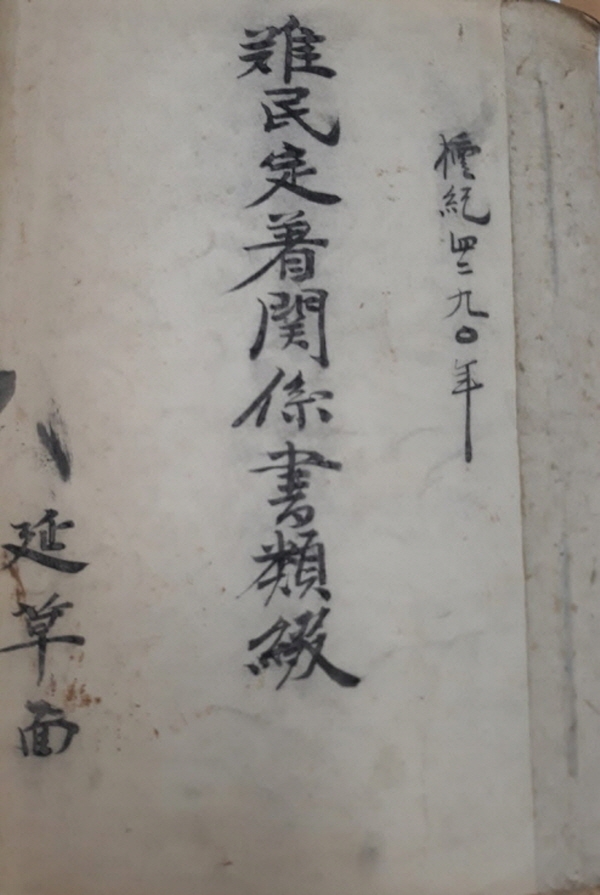 檀紀四二九〇年
難民定着関係書類綴
延草面